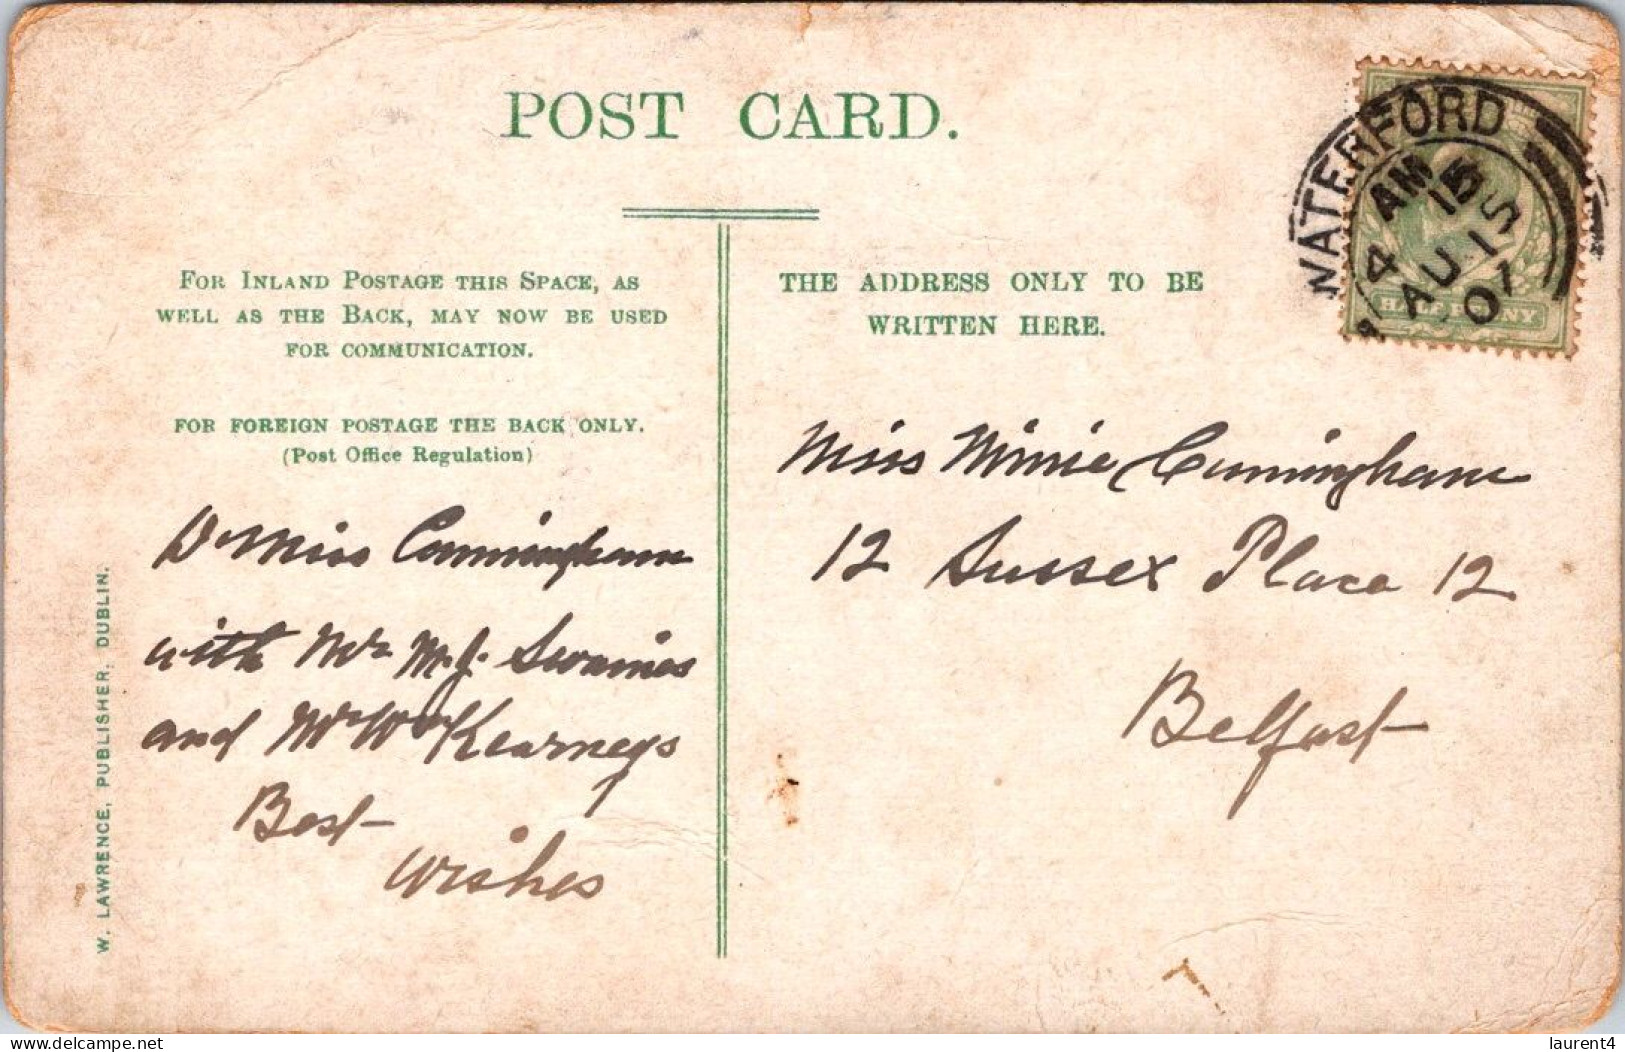 POST CARD.
WATERFORD
4 AM 15
AU 15
07
HALFPENNY
FOR INLAND POSTAGE THIS SPACE, AS
WELL AS THE BACK, MAY NOW BE USED
FOR COMMUNICATION.
FOR FOREIGN POSTAGE THE BACK ONLY.
(Post Office Regulation)
THE ADDRESS ONLY TO BE
WRITTEN HERE.
Dr Miss Cunningham
with Mr M. J. Swaines
and Mr Wm Kearneys
Best
wishes
Miss Minnie Cunningham
12 Sussex Place 12
Belfast
W. LAWRENCE, PUBLISHER, DUBLIN.
delcampe.net
laurent4